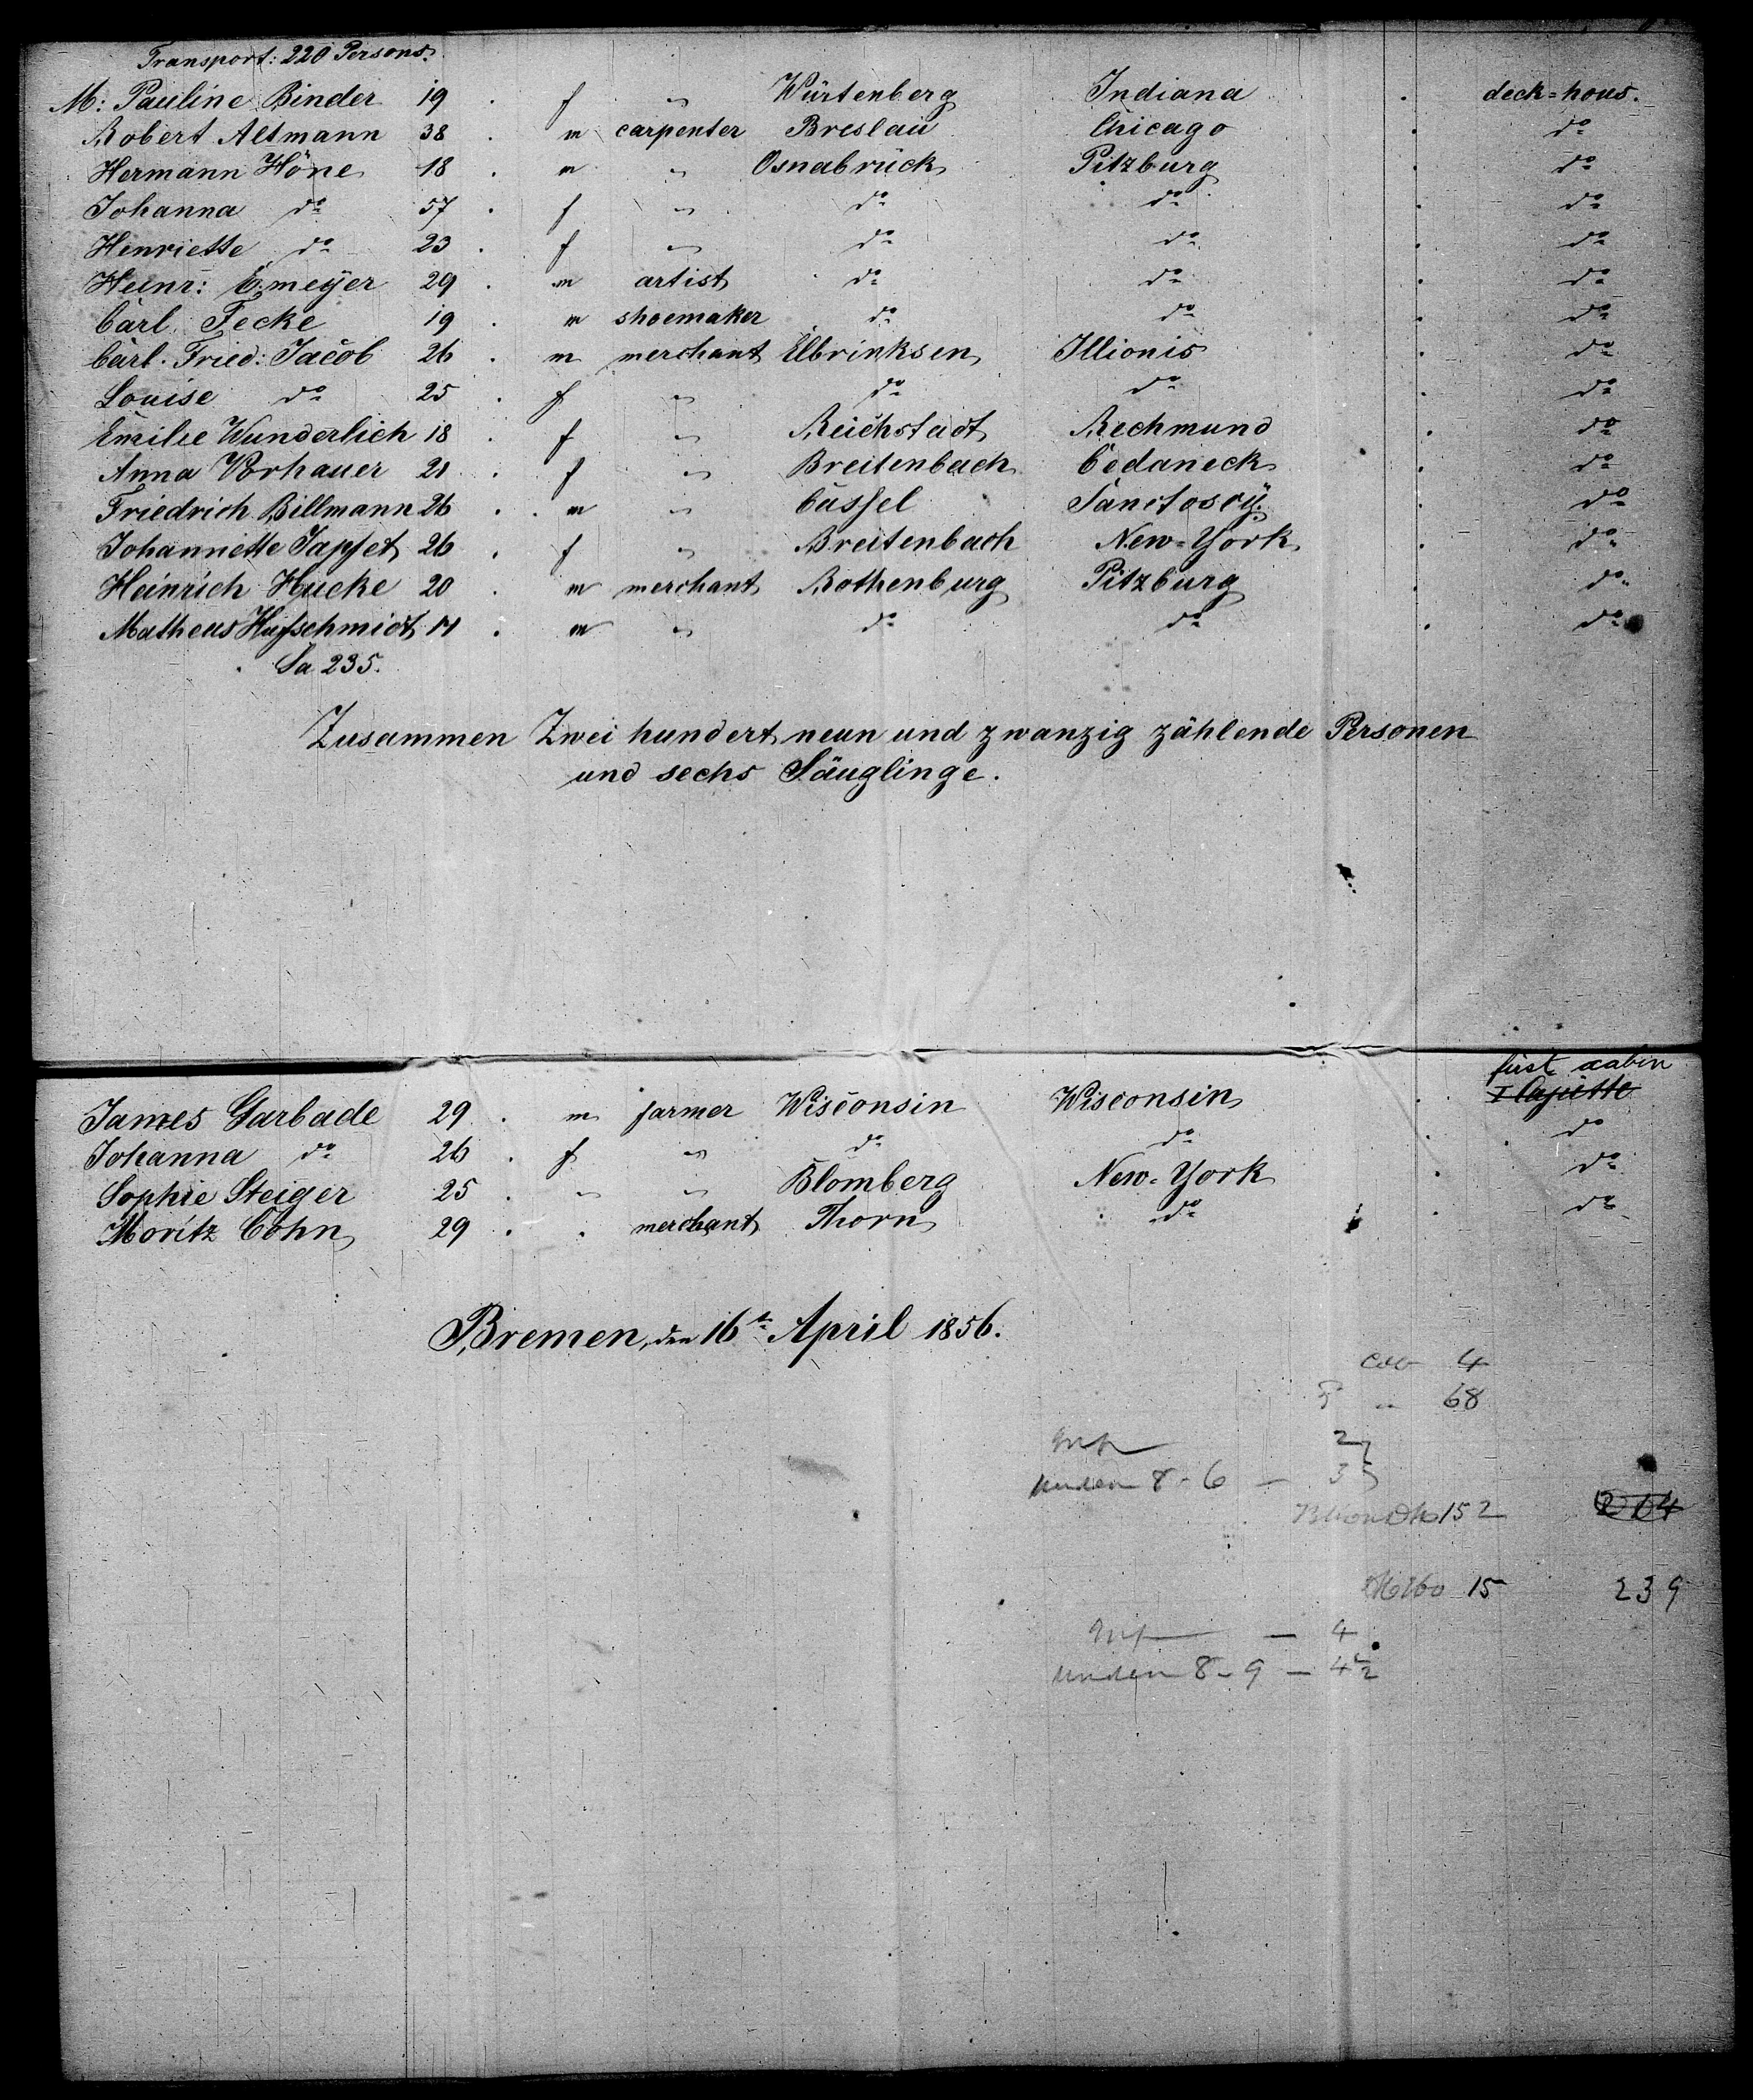 Transport: 220 Persons.
M: Pauline Binder 19 . f " Würtenberg Indiana . deck=hous.
Robert Altmann 38 . m carpenter Breslau Chicago . do
Hermann Höne 18 . m " Osnabrück Pitzburg . do
Johanna do 57 . f " do do . do
Henriette do 23 . f " do do . do
Heinr: Emeÿer 29 . m artist do do . do
Carl Fecke 19 . m shoemaker do do . do
Carl. Fried: Jacob 26 . m merchant Elbrinksen Illionis . do
Louise do 25 . f " do do . do
Emilie Wunderlich 18 . f " Reichstadt Rechmund . do
Anna Vorhauer 21 . f " Breitenbach Cedaneck . do
Friedrich Billmann 26 . m " Cassel Sanctoscÿ. . do
Johannette Tapfet 26 . f " Breitenbach New=York . do
Heinrich Hucke 20 . m merchant Rothenburg Pitzburg . do
Matheus Hufschmidt . m " do do . do
Sa 235.
Zusammen Zwei hundert neun und zwanzig zählende Personen
und sechs Säuglinge.
first cabin
James Garbade 29 . m farmer Wisconsin Wisconsin . I Cajütte
Johanna do 26 . f " do do . do
Sophie Steiger 25 . " " Blomberg New=York . do
Moritz Cohn 29 . . merchant Thorn do . do
Bremen, den 16t April 1856.
4
68
2
under 8 - 6 - 3
152 214
15 239
- 4
under 8 - 9 - 4½